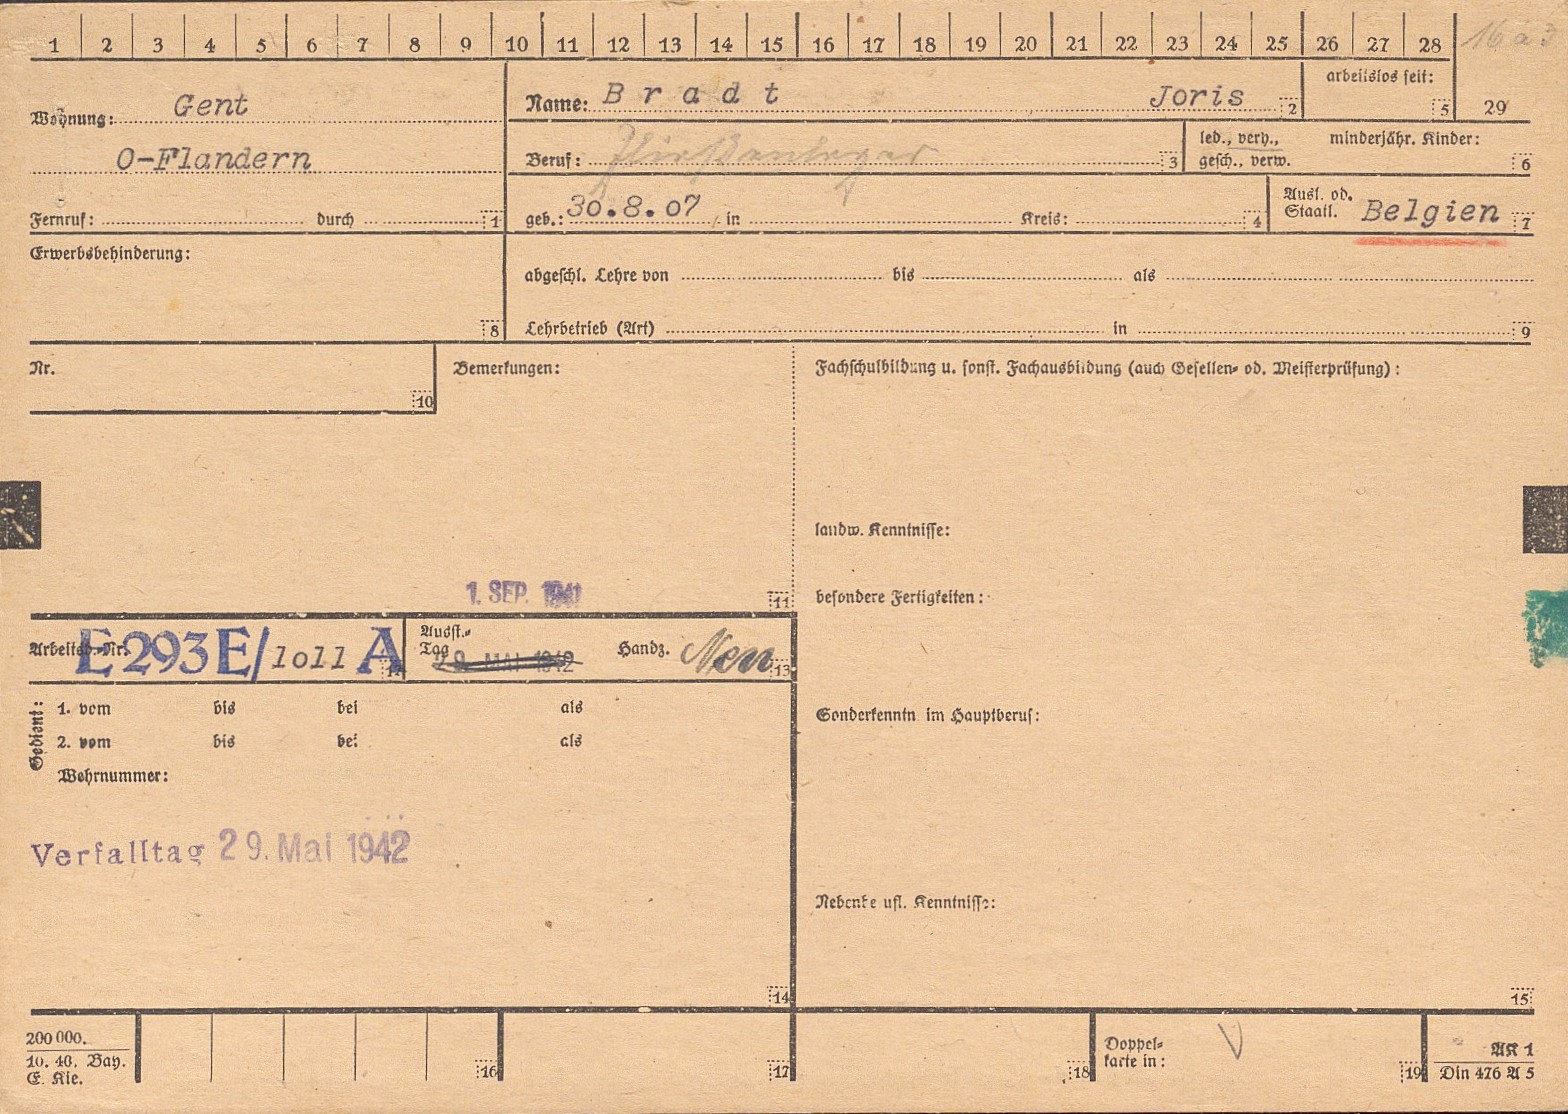 1 2 3 4 5 6 7 8 9 10 11 12 13 14 15 16 17 18 19 20 21 22 23 24 25 26 27 28
Wohnung: Gent
O-Flandern
Fernruf: durch 1
Name: Bradt Joris 2
arbeitslos seit: 5
29
Beruf: Fließenleger 3
led., verh., minderjähr. Kinder:
gesch., verw. 6
geb.: 30.8.07 in Kreis: 4
Ausl. od.
Staatl. Belgien 7
Erwerbsbehinderung:
8
abgeschl. Lehre von bis als
Lehrbetrieb (Art) in 9
Nr.
10
Bemerkungen:
1. SEP. 1941
11
Fachschulbildung u. sonst. Fachausbildung (auch Gesellen- od. Meisterprüfung) :
landw. Kenntnisse:
besondere Fertigkeiten :
Sonderkenntn im Hauptberuf:
Nebenbe ufl. Kenntnisse:
15
Arbeitsb.-Nr. E293E/1011 A
Ausst.-
Tag 29. MAI 1942
Handz. 13
Gedient:
1. vom bis bei als
2. vom bis bei als
Wehrnummer:
Verfalltag 29. Mai 1942
14
200 000.
10. 40. Bay.
E. Kie.
16 17 18
Doppel-
karte in: 19
AK 1
Din 476 A 5